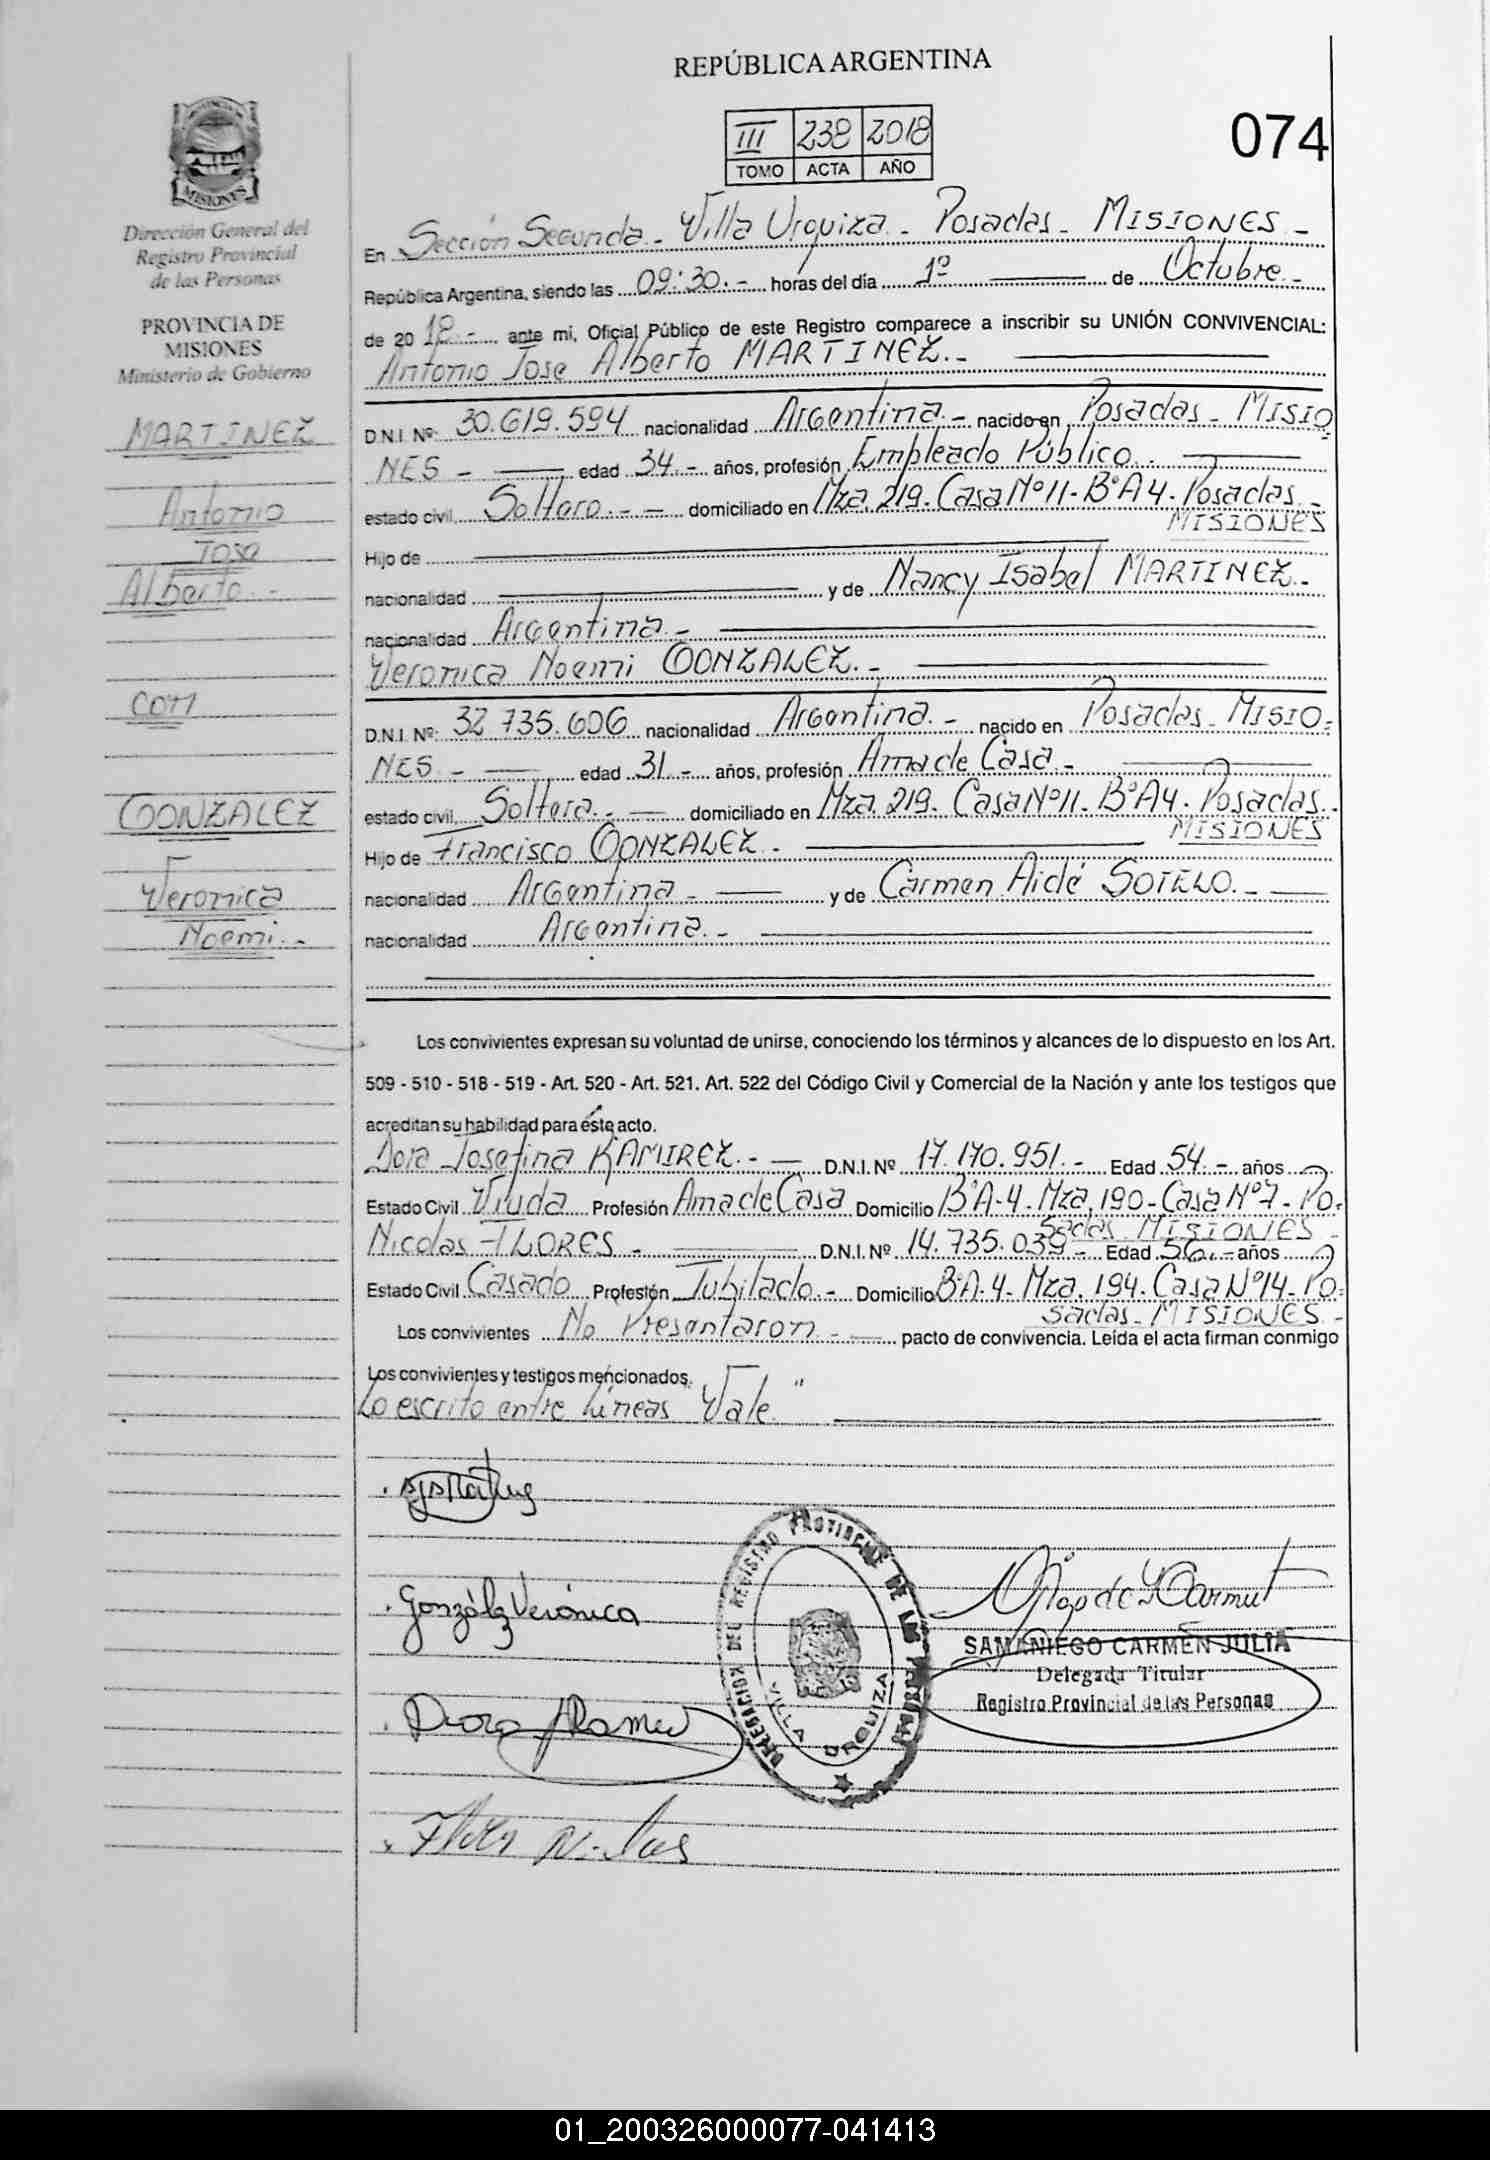 REPÚBLICA ARGENTINA
III 238 2018
TOMO ACTA AÑO
074
PROVINCIA DE
MISIONES
Dirección General del
Registro Provincial
de las Personas
PROVINCIA DE
MISIONES
Ministerio de Gobierno
MARTINEZ
Antonio
Jose
Alberto.-
con
GONZALEZ
Veronica
Noemi.-
En Sección Segunda - Villa Urquiza - Posadas - MISIONES -
República Argentina, siendo las 09:30.- horas del día 1º de Octubre.-
de 2018.- ante mi, Oficial Público de este Registro comparece a inscribir su UNIÓN CONVIVENCIAL:
Antonio Jose Alberto MARTINEZ.-
D.N.I. Nº: 30.619.594 nacionalidad Argentina.- nacido en Posadas - MISIO
NES - edad 34.- años, profesión Empleado Público.
estado civil Soltero.- - domiciliado en Mza. 219. Casa Nº 11 - Bº A4. Posadas -
MISIONES
Hijo de
nacionalidad y de Nancy Isabel MARTINEZ.-
nacionalidad Argentina.-
Veronica Noemi GONZALEZ.-
D.N.I. Nº: 32.735.606 nacionalidad Argentina.- nacido en Posadas - MISIO-
NES - edad 31.- años, profesión Ama de Casa.-
estado civil Soltera.- domiciliado en Mza. 219. Casa Nº 11. Bº A4. Posadas.
MISIONES
Hijo de Francisco GONZALEZ.
nacionalidad Argentina. y de Carmen Aidé SOTELO.-
nacionalidad Argentina.-
Los convivientes expresan su voluntad de unirse, conociendo los términos y alcances de lo dispuesto en los Art.
509 - 510 - 518 - 519 - Art. 520 - Art. 521. Art. 522 del Código Civil y Comercial de la Nación y ante los testigos que
acreditan su habilidad para éste acto.
Dora Josefina RAMIREZ.- D.N.I. Nº 17.170.951.- Edad 54.- años
Estado Civil Viuda Profesión Ama de Casa Domicilio Bº A-4. Mza. 190 - Casa Nº 7 - Po-
sadas MISIONES -
Nicolas FLORES - D.N.I. Nº 14.735.039 - Edad 56.- años
Estado Civil Casado Profesión Jubilado.- Domicilio Bº A-4. Mza. 194. Casa Nº 14 - Po-
sadas - MISIONES -
Los convivientes No Presentaron - pacto de convivencia. Leída el acta firman conmigo
Los convivientes y testigos mencionados.
Lo escrito entre lineas "Vale"
González Verónica
DELEGACION DEL REGISTRO PROVINCIAL DE LAS PERSONAS
VILLA URQUIZA
SAMANIEGO CARMEN JULIA
Delegada Titular
Registro Provincial de las Personas
Flores Nicolas
01_200326000077-041413